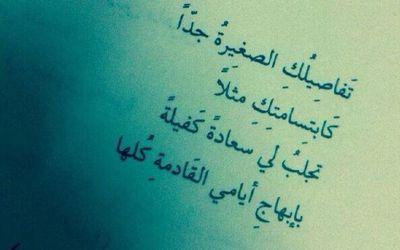 تَفاصِيلُكِ الصغيرةُ جدًّا
كَابتِسامتِكِ مثلًا
تجلبُ لي سعادةً كَفيلةً
بإبهاجِ أيامي القَادمةِ كُلها